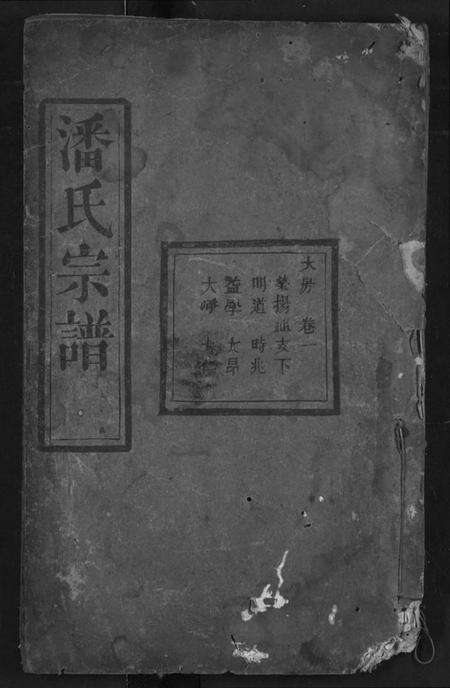 潘氏宗譜
大房 卷一
業揚祉支下
明道 時兆
益學 大昂
大崢